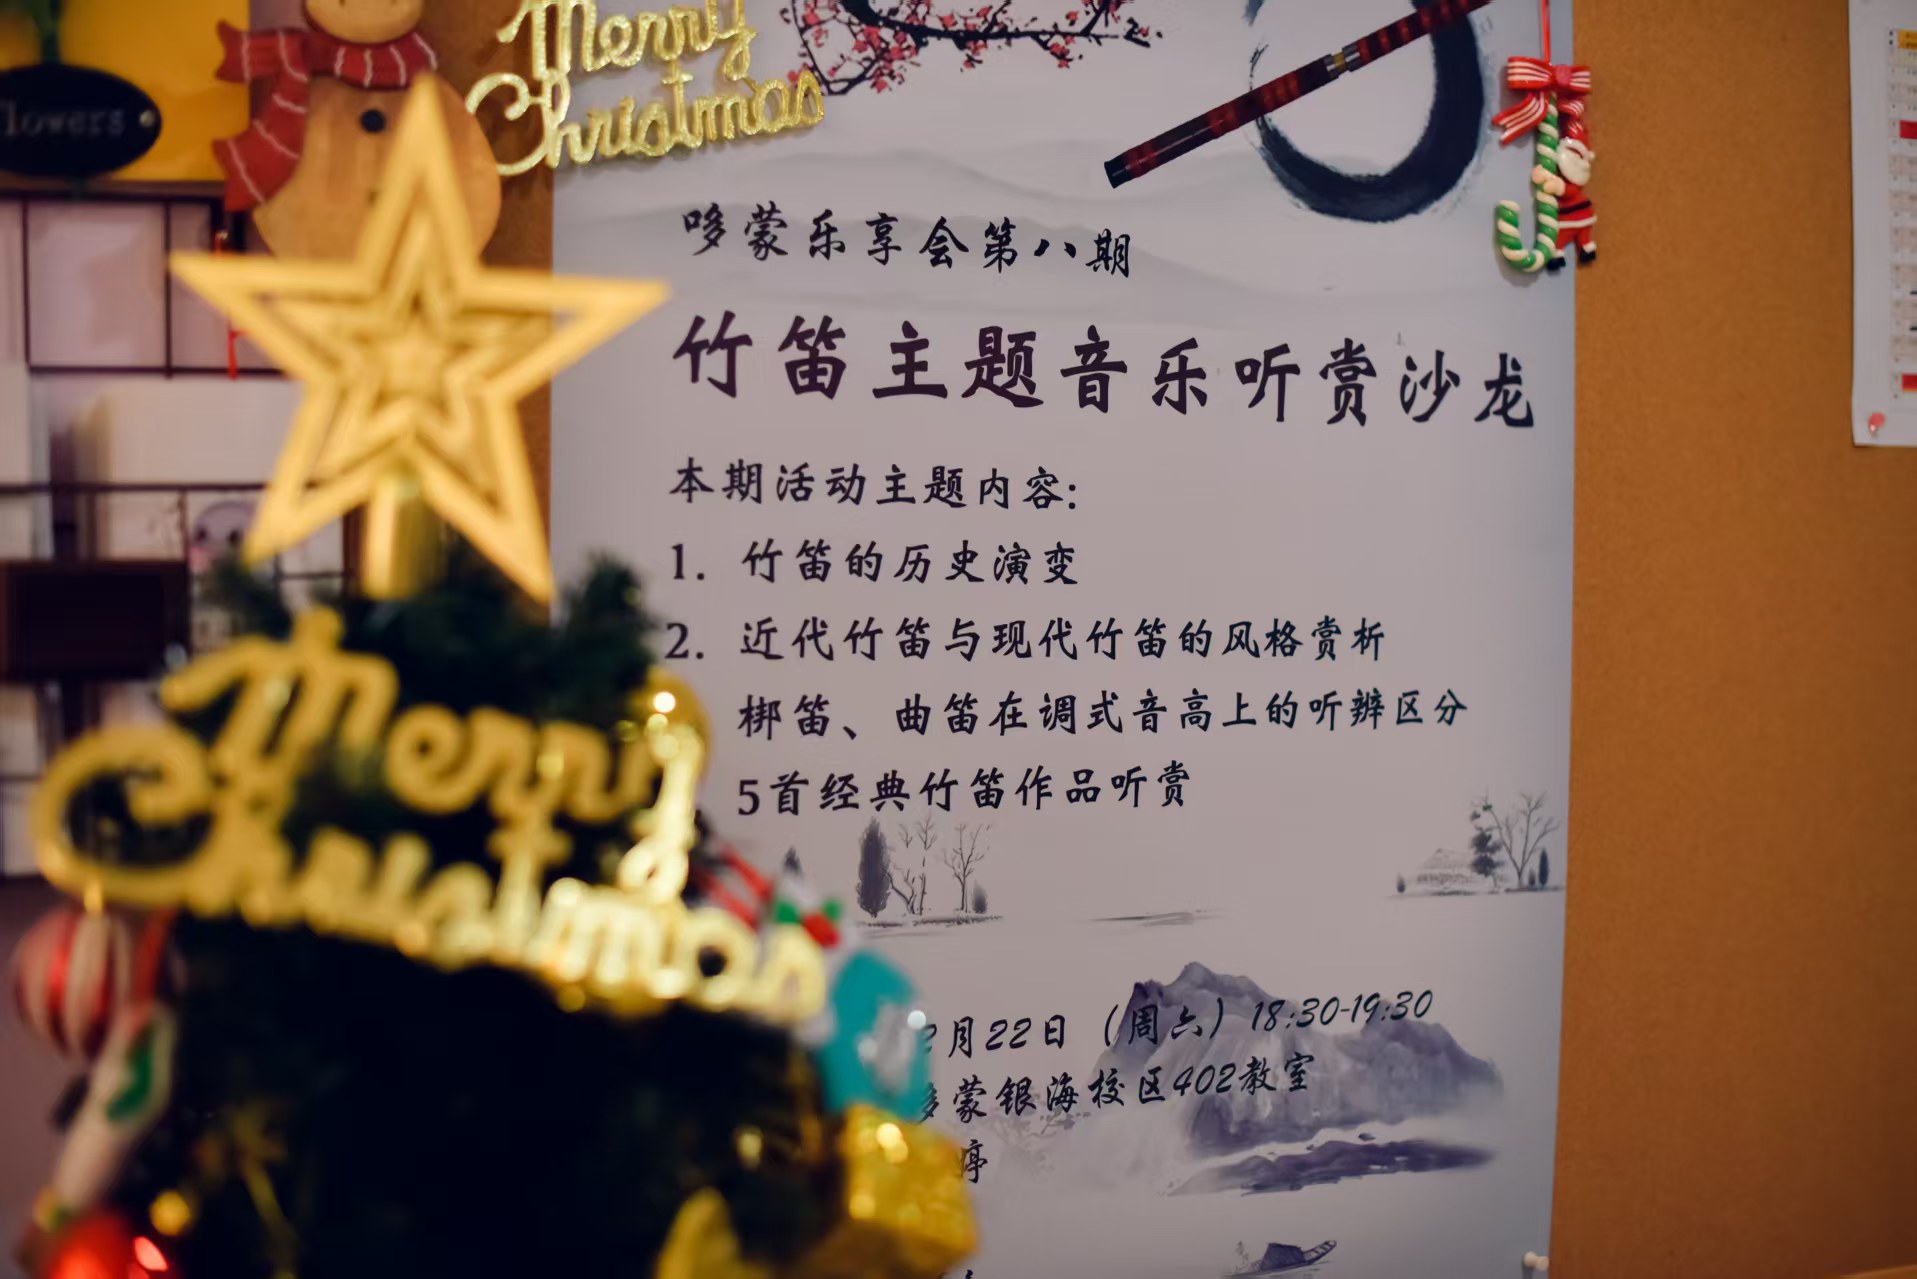 Merry
Christmas
哆蒙乐享会第八期
竹笛主题音乐听赏沙龙
本期活动主题内容:
1. 竹笛的历史演变
2. 近代竹笛与现代竹笛的风格赏析
梆笛、曲笛在调式音高上的听辨区分
5首经典竹笛作品听赏
2月22日（周六）18:30-19:30
蒙银海校区402教室
婷
Merry
Christmas